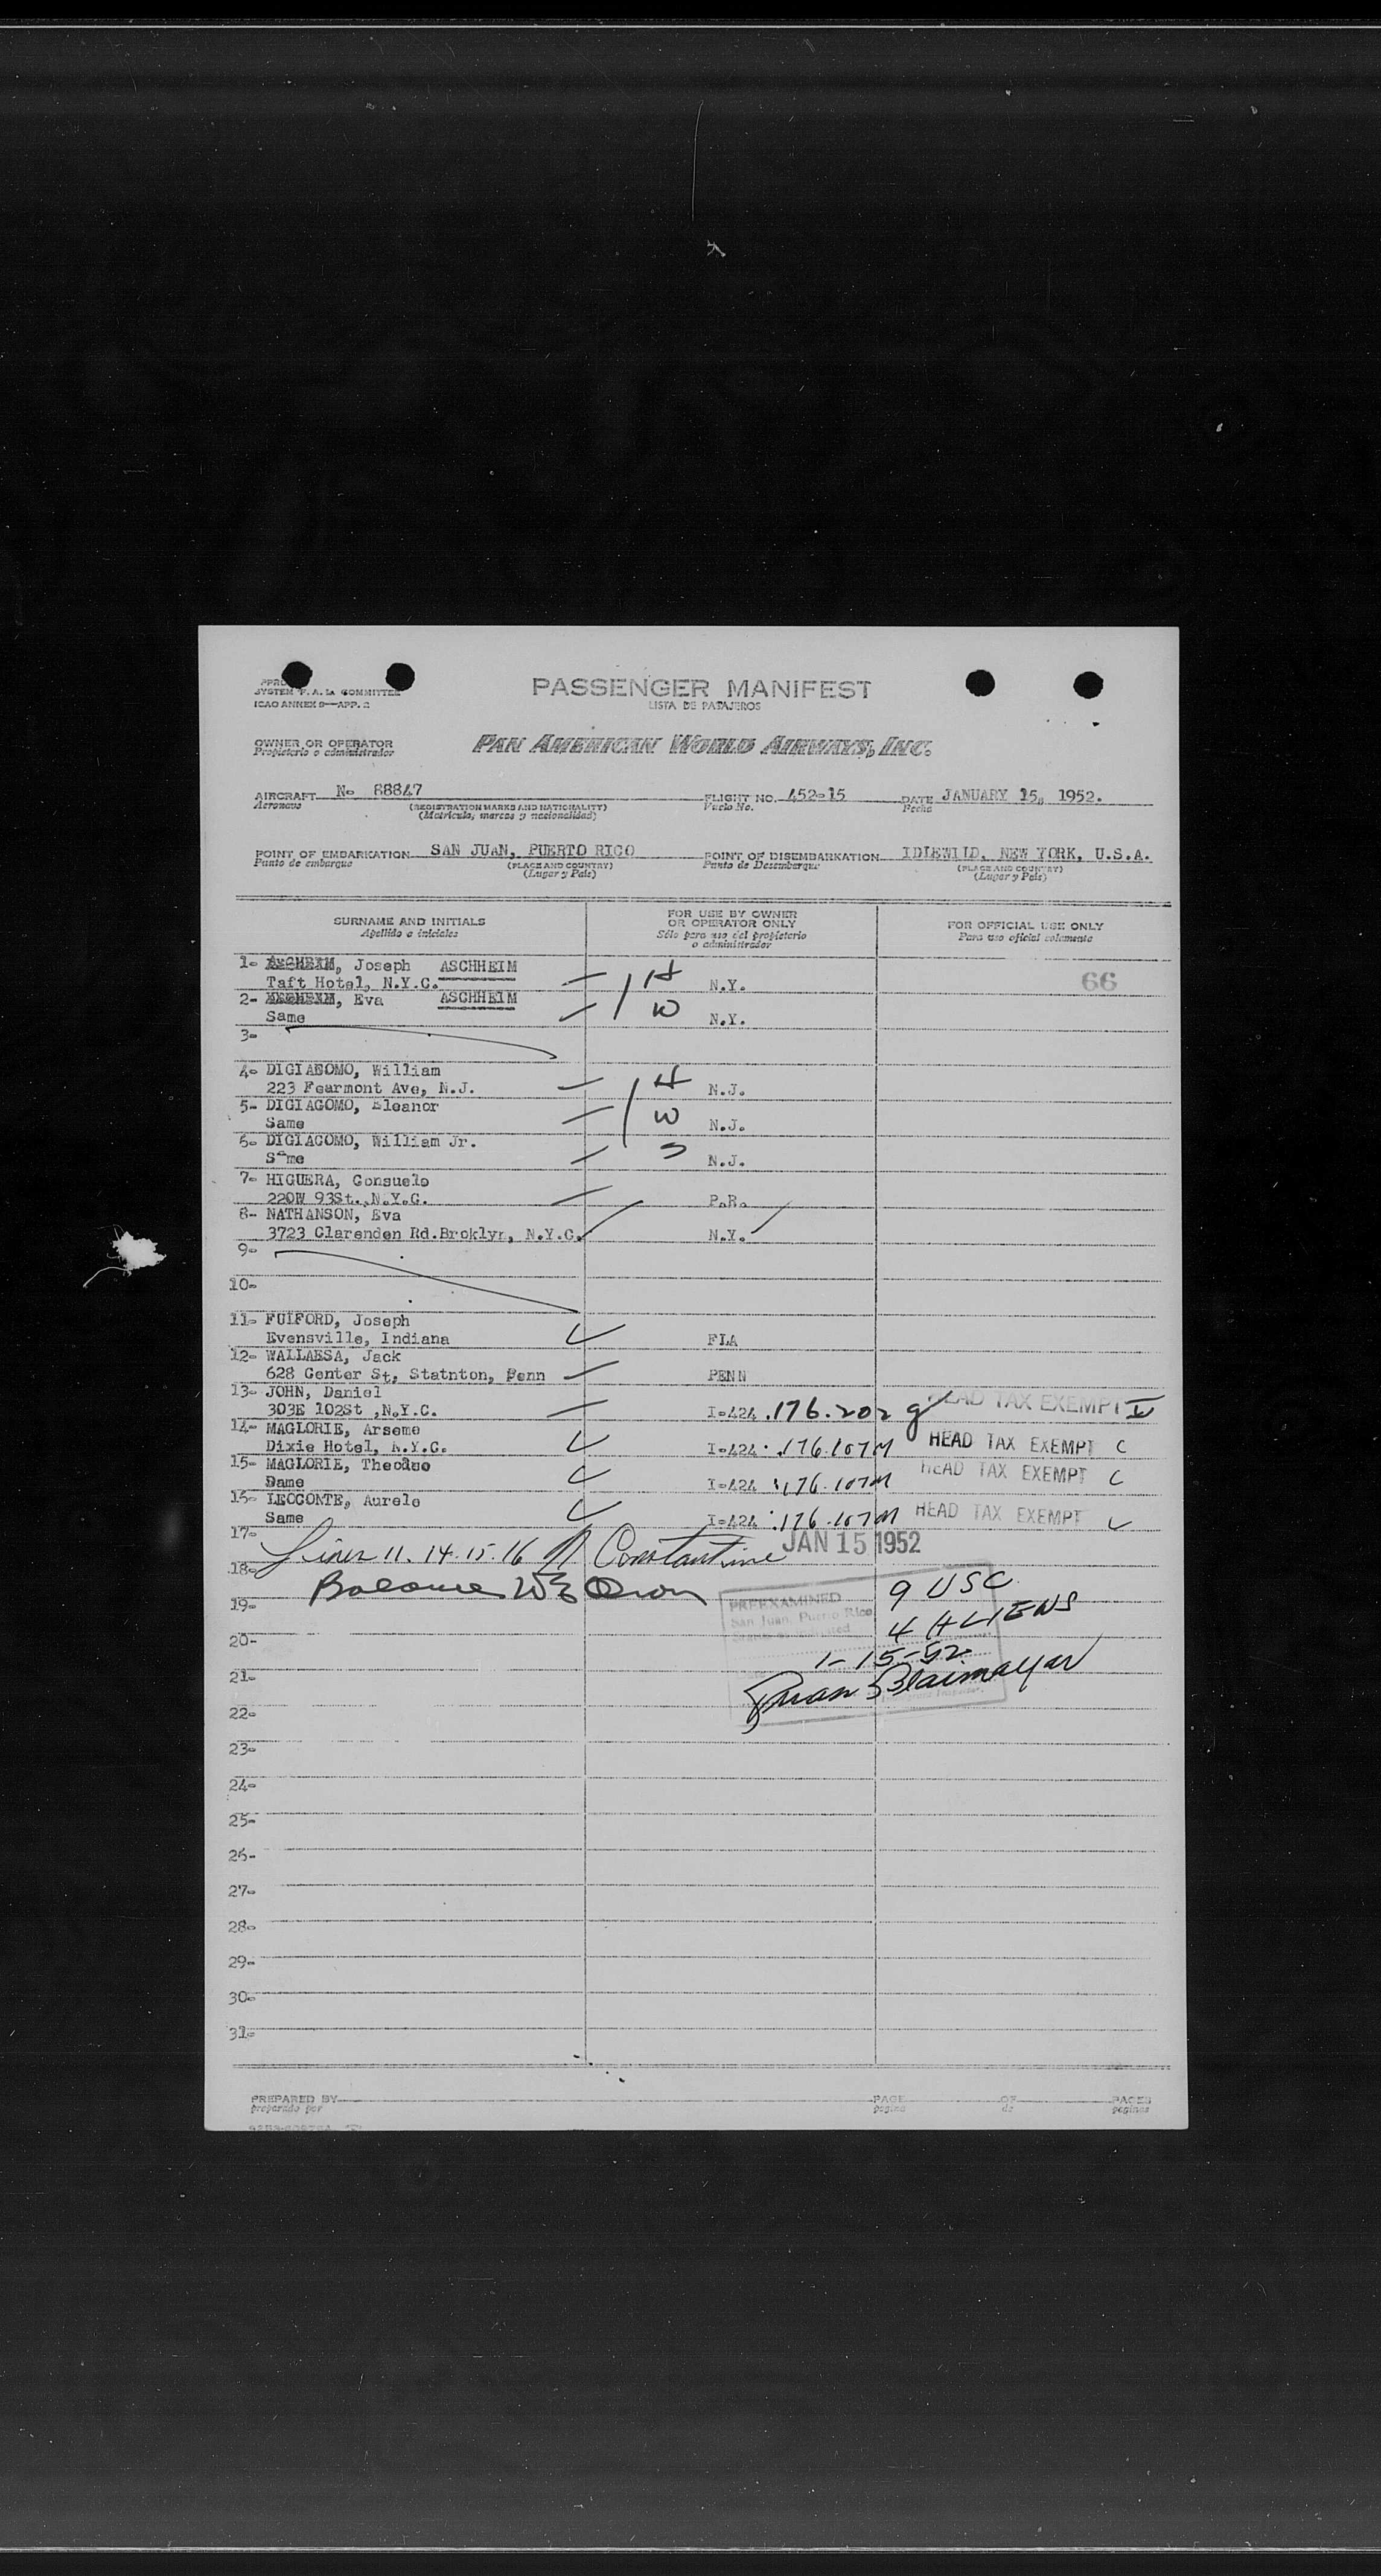 SYSTEM F. A. L. COMMITTEE
ICAO ANNEX 9—APP. 2
PASSENGER MANIFEST
LISTA DE PASAJEROS
OWNER OR OPERATOR
Propietario o administrador
PAN AMERICAN WORLD AIRWAYS, INC.
AIRCRAFT No 88847 FLIGHT NO. 452-15 DATE JANUARY 15, 1952.
Aeronave (REGISTRATION MARKS AND NATIONALITY) Vuelo No. Fecha
(Matrícula, marcas y nacionalidad)
POINT OF EMBARKATION SAN JUAN, PUERTO RICO POINT OF DISEMBARKATION IDLEWILD, NEW YORK, U.S.A.
Punto de embarque (PLACE AND COUNTRY) Punto de Desembarque (PLACE AND COUNTRY)
(Lugar y País) (Lugar y País)
SURNAME AND INITIALS FOR USE BY OWNER OR OPERATOR ONLY FOR OFFICIAL USE ONLY
Apellido e iniciales Sólo para uso del propietario o administrador Para uso oficial solamente
1- Joseph ASCHHEIM H 66
Taft Hotel, N.Y.C. N.Y.
2- Eva ASCHHEIM W
Same N.Y.
3-
4- DIGIAEOMO, William H
223 Fearmont Ave, N.J. N.J.
5- DIGIAGOMO, Eleanor W
Same N.J.
6- DIGIACOMO, William Jr. S
Same N.J.
7- HIGUERA, Consuelo
220W 93St., N.Y.C. P.R.
8- NATHANSON, Eva
3723 Clarenden Rd.Broklyn, N.Y.C. N.Y.
9-
10-
11- FULFORD, Joseph
Evensville, Indiana FLA
12- WALLAESA, Jack
628 Center St, Statnton, Penn PENN
13- JOHN, Daniel
303E 102St ,N.Y.C. I-424 .176.202 g HEAD TAX EXEMPT
14- MAGLORIE, Arseme
Dixie Hotel, N.Y.C. I-424 .176.107M HEAD TAX EXEMPT C
15- MAGLORIE,
Dame I-424 .176.107M HEAD TAX EXEMPT C
16- LECCONTE, Aurele
Same I-424 .176.107M HEAD TAX EXEMPT C
17- JAN 15 1952
Lines 11. 14. 15. 16 Constantine
18- 9 USC
Balance
19- PREEXAMINED
San Juan, Puerto Rico
4 ALIENS
20- 1-15-52
21-
22-
23-
24-
25-
26-
27-
28-
29-
30-
31-
PREPARED BY PAGE OF PAGES
preparado por página de páginas